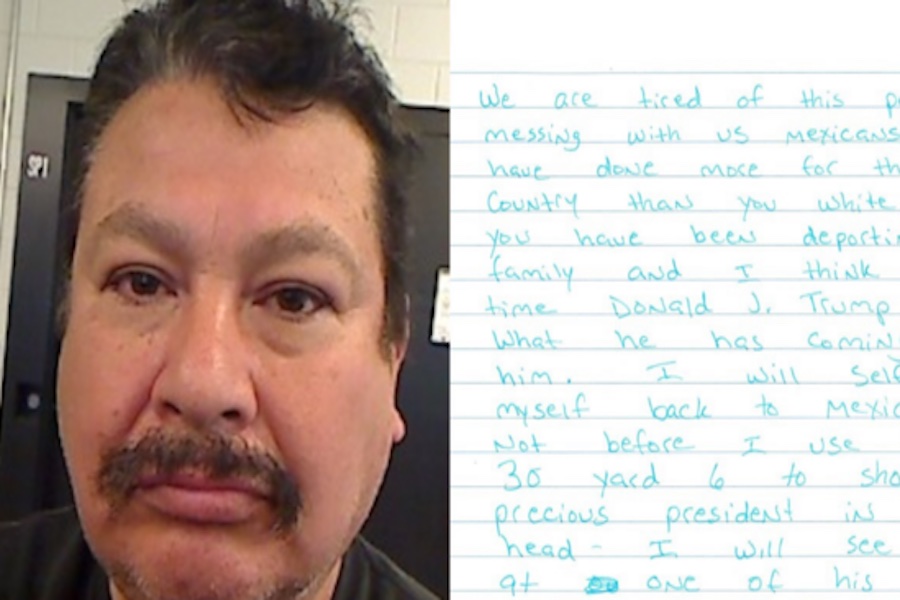 SP1
We are tired of this p
messing with us Mexicans
have done more for th
Country than you white
you have been deporti
family and I think
time Donald J. Trump
What he has comin
him. I will sel
myself back to Mexic
Not before I use
30 yard 6 to sho
precious president in
head - I will see
at one of his